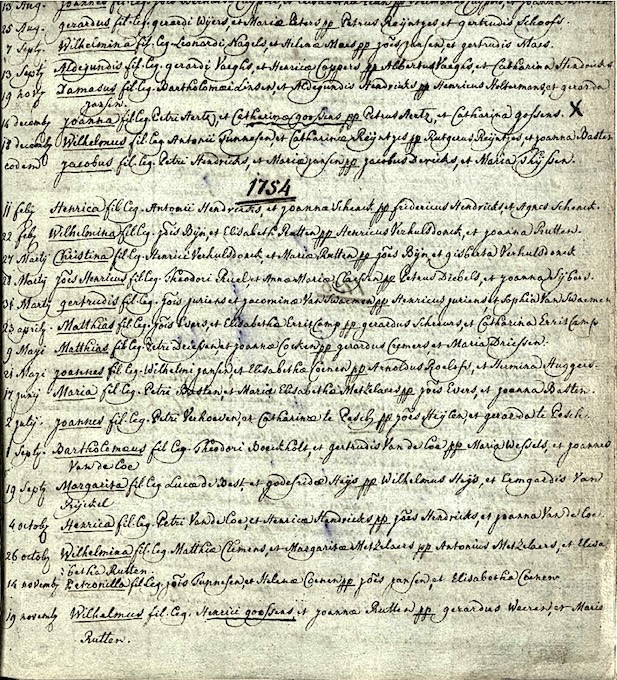 13 Aug. Joannes
25 Aug. gerardus fil: gerardi Wijers, et Mariæ Peters pp Petrus Reijntjes et gertrudis Schoofs.
7 Septy Wilhelmina fil: Leg. Leonardi Nagels, et Helenæ Maes pp joēs jansen, et gertrudis Maes.
13 Septy Aldegundis fil. leg. gerardi Vaeghs, et Henricæ Cuppers pp Albertus Vaeghs, et Catharina Hendricks
19 novy Damasus fil: Leg. Bartholomæi Linsen, et Aldegundis Hendricks pp Henricus Holtermans, et gerarda
jansen.
14 decemb Joanna fil: Leg. Petri Aertz, et Catharinæ goossens pp Petrus Aertz, et Catharina gossens. X
18 decemb Wilhelmus fil: Leg. Antonii Tunnesen, et Catharinæ Reijntjes pp Rutgerus Reijntjes et joanna Basten
eodem jacobus fil. Leg. Petri Hendricks, et Mariæ jansen pp jacobus Dericks, et Maria Thijssen.
1754
11 feby Henrica fil: Leg. Antonii Hendricks, et joannæ Schenck pp fredericus Hendricks, et Agnes Schenck.
22 feby Wilhelmina fil: Leg. joīs Bijn, et Elisabeth Rutten pp Henricus Verhuldonck, et joanna Rutten.
27 Marty Christina fil: Leg. Henrici Verhuldonck, et Maria Rutten pp joēs Bijn, et gisberta Verhuldonck
28 Marty joēs Henricus fil: Leg. Theodori et Anna Maria Claesen pp Petrus Diebels, et joanna Sijbers.
31 Marty gertrudis fil: Leg. joīs juriens, et jacominæ Van Swaemen pp Henricus juriens, et Sophia Van Swaemen
23 aprily Matthias fil: Leg. joīs Evers, et Elisabetha Erritcamp pp gerardus Scheurs et Catharina Erritcamp
9 Maji Matthias fil: Leg. Petri Driessen, et joannæ Coesen pp gerardus Cremers et Maria Driessen.
21 Maji joannes fil: Leg. Wilhelmi jansen, et Elisabetha Coenen pp Arnoldus Roelofs, et Hermina Huggers.
17 junij Maria fil: Leg. Petri Basten, et Maria Elisabetha Metzelaers pp joēs Evers, et joanna Basten.
2 julij. joannes fil: Leg. Petri Verhoeven, et Catharinæ te Pesch pp joēs Heijlen, et gerarda te Pesch.
1 Septy. Bartholomæus fil Leg. Theodori Boeckholt, et gertrudis Van de Loe pp Maria Wessels, et joannes
Van de Loe
19 Septy Margarita fil: Leg. Lucæ de Best, et godefridæ Heijs pp Wilhelmus Heijs, et Lemgardis Van
Krijckel
4 octoby Henrica fil: Leg. Petri Van de Loe, et Henricæ Hendricks pp joēs Hendricks, et joanna Van de Loe.
26 octoby Wilhelmina fil: Leg. Matthiæ Clemens, et Margaritæ Metzelaers pp Antonius Metzelaers, et Elisa
betha Rutten.
14 novemby Petronilla fil: Leg. joīs Tunnesen, et Helenæ Coenen pp joēs jansen, et Elisabetha Coenen
19 novemby Wilhelmus fil. Leg. Henrici goossens et joannæ Rutten pp gerardus Weeren, et Maria
Rutten.